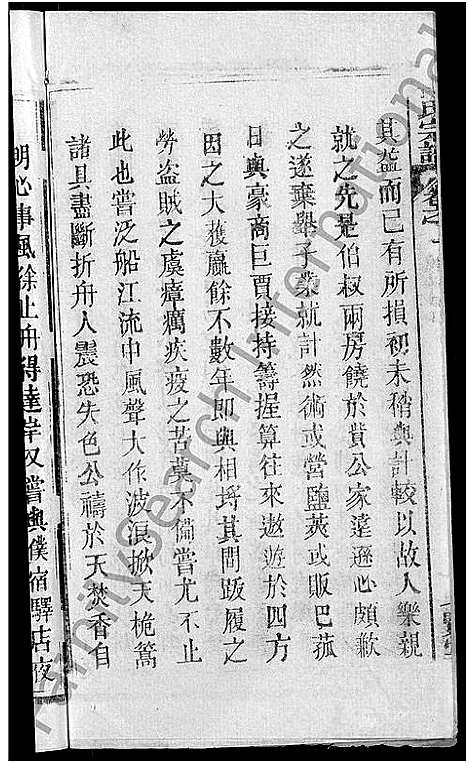 其益而已有所損初未稍與計較以故人樂親
就之先是伯叔兩房饒於貲公家遠遜心頗歉
之遂棄舉子業就計然術或營鹽莢或販巴菰
日與豪商巨賈接持籌握算往來遨遊於四方
因之大獲贏餘不數年即與相埓其間跋履之
勞盜賊之虞瘴癘疾疫之苦莫不備嘗尤不止
此也嘗泛船江流中風聲大作波浪掀天桅篙
諸具盡斷折舟人震恐失色公禱於天焚香自
明心事風餘止舟得達岸又嘗與僕宿驛店夜
familysearch international